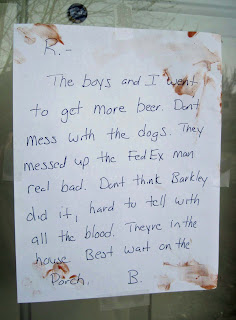 R.-
The boys and I went
to get more beer. Dont
mess with the dogs. They
messed up the FedEx man
real bad. Dont think Barkley
did it, hard to tell with
all the blood. Theyre in the
house. Best wait on the
Porch. B.